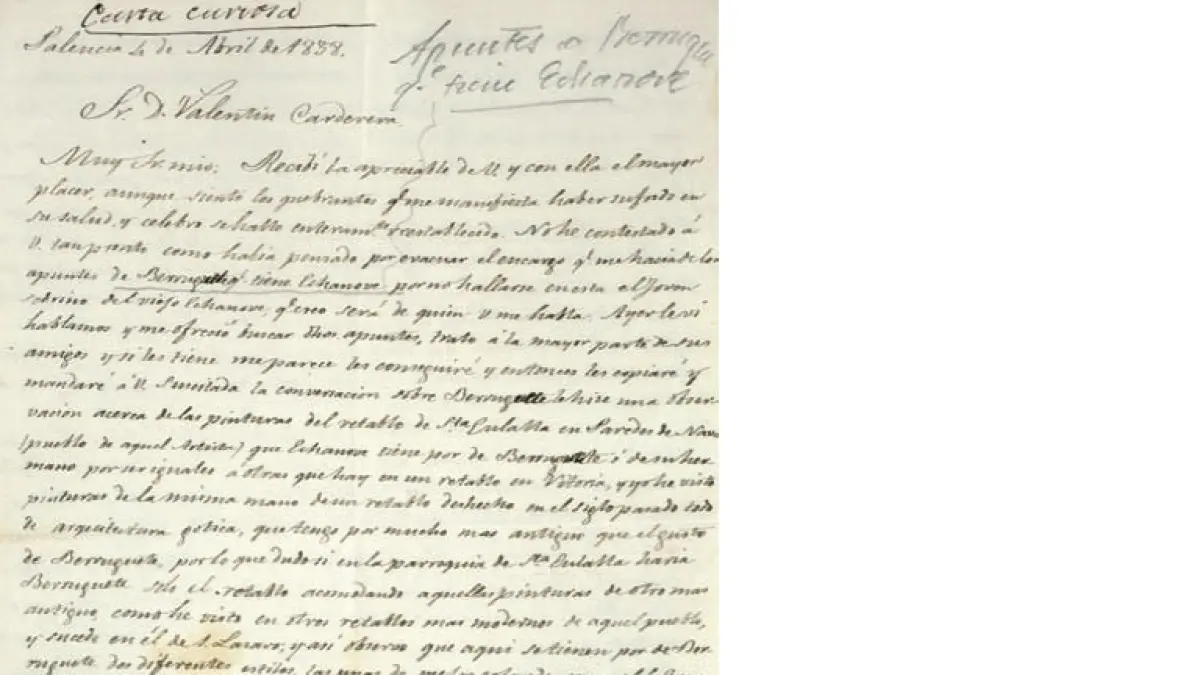 Carta curiosa
Palencia 4 de Abril de 1838.
Apuntes de Berrugu
q.e tiene Echanove
Sr. D. Valentin Carderera.
Muy Sr. mio; Recibí la apreciable de V. y con ella el mayor
placer, aunque siento los quebrantos q.e me manifiesta haber sufrido en
su salud, y celebro se halle enteram.te restablecido. No he contestado á
V. tan pronto como habia pensado por evacuar el encargo q.e me hacia de los
apuntes de Berruguete q.e tiene Echanove por no hallarse en esta el Joven
sobrino del viejo Echanove, q.e creo será de quien V. me habla. Ayer le vi
hablamos y me ofreció buscar dhos apuntes, trato á la mayor parte de sus
amigos y si los tiene me parece los conseguiré y entonces los copiaré y
mandaré á V. Suscitada la conversacion sobre Berruguete le hice una obser-
vacion acerca de las pinturas del retablo de S.ta Eulalia en Paredes de Nava
(pueblo de aquel Artista) que Echanove tiene por de Berruguete ó de su her-
mano por ser iguales á otras que hay en un retablo en Vitoria, y yo he visto
pinturas de la misma mano de un retablo deshecho en el siglo pasado todo
de arquitectura gotica, que tengo por mucho mas antiguo que el gusto
de Berruguete, por lo que dudo si en la parroquia de S.ta Eulalia haria
Berruguete solo el retablo acomodando aquellas pinturas de otro mas
antiguo, como he visto en otros retablos mas modernos de aquel pueblo,
y sucede en él de S. Lazaro, y asi observo que aqui se tienen por de Ber-
ruguete dos diferentes estilos, las unas de